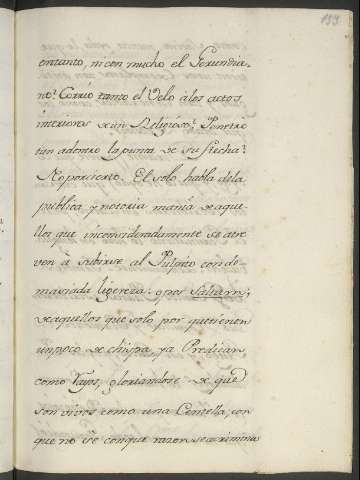 133
entanto, ni con mucho el Gerundia-
no? Corrió tanto el Velo á los actos
interiores de un Religioso? Penetró
tan adentro la punta de su fleche?
No por cierto. El solo habla de la
publica y notoria mania de aque-
llos que inconsideradamente se atre
ven à subirse al Pulpito con de-
masiada ligereza: por Saltarn;
de aquellos que solo por que tienen
un poco de chispa, ya Predican,
como Rayos, gloriandose de que
son vivos como una Centella, con
que no sè con que razon se acrimina